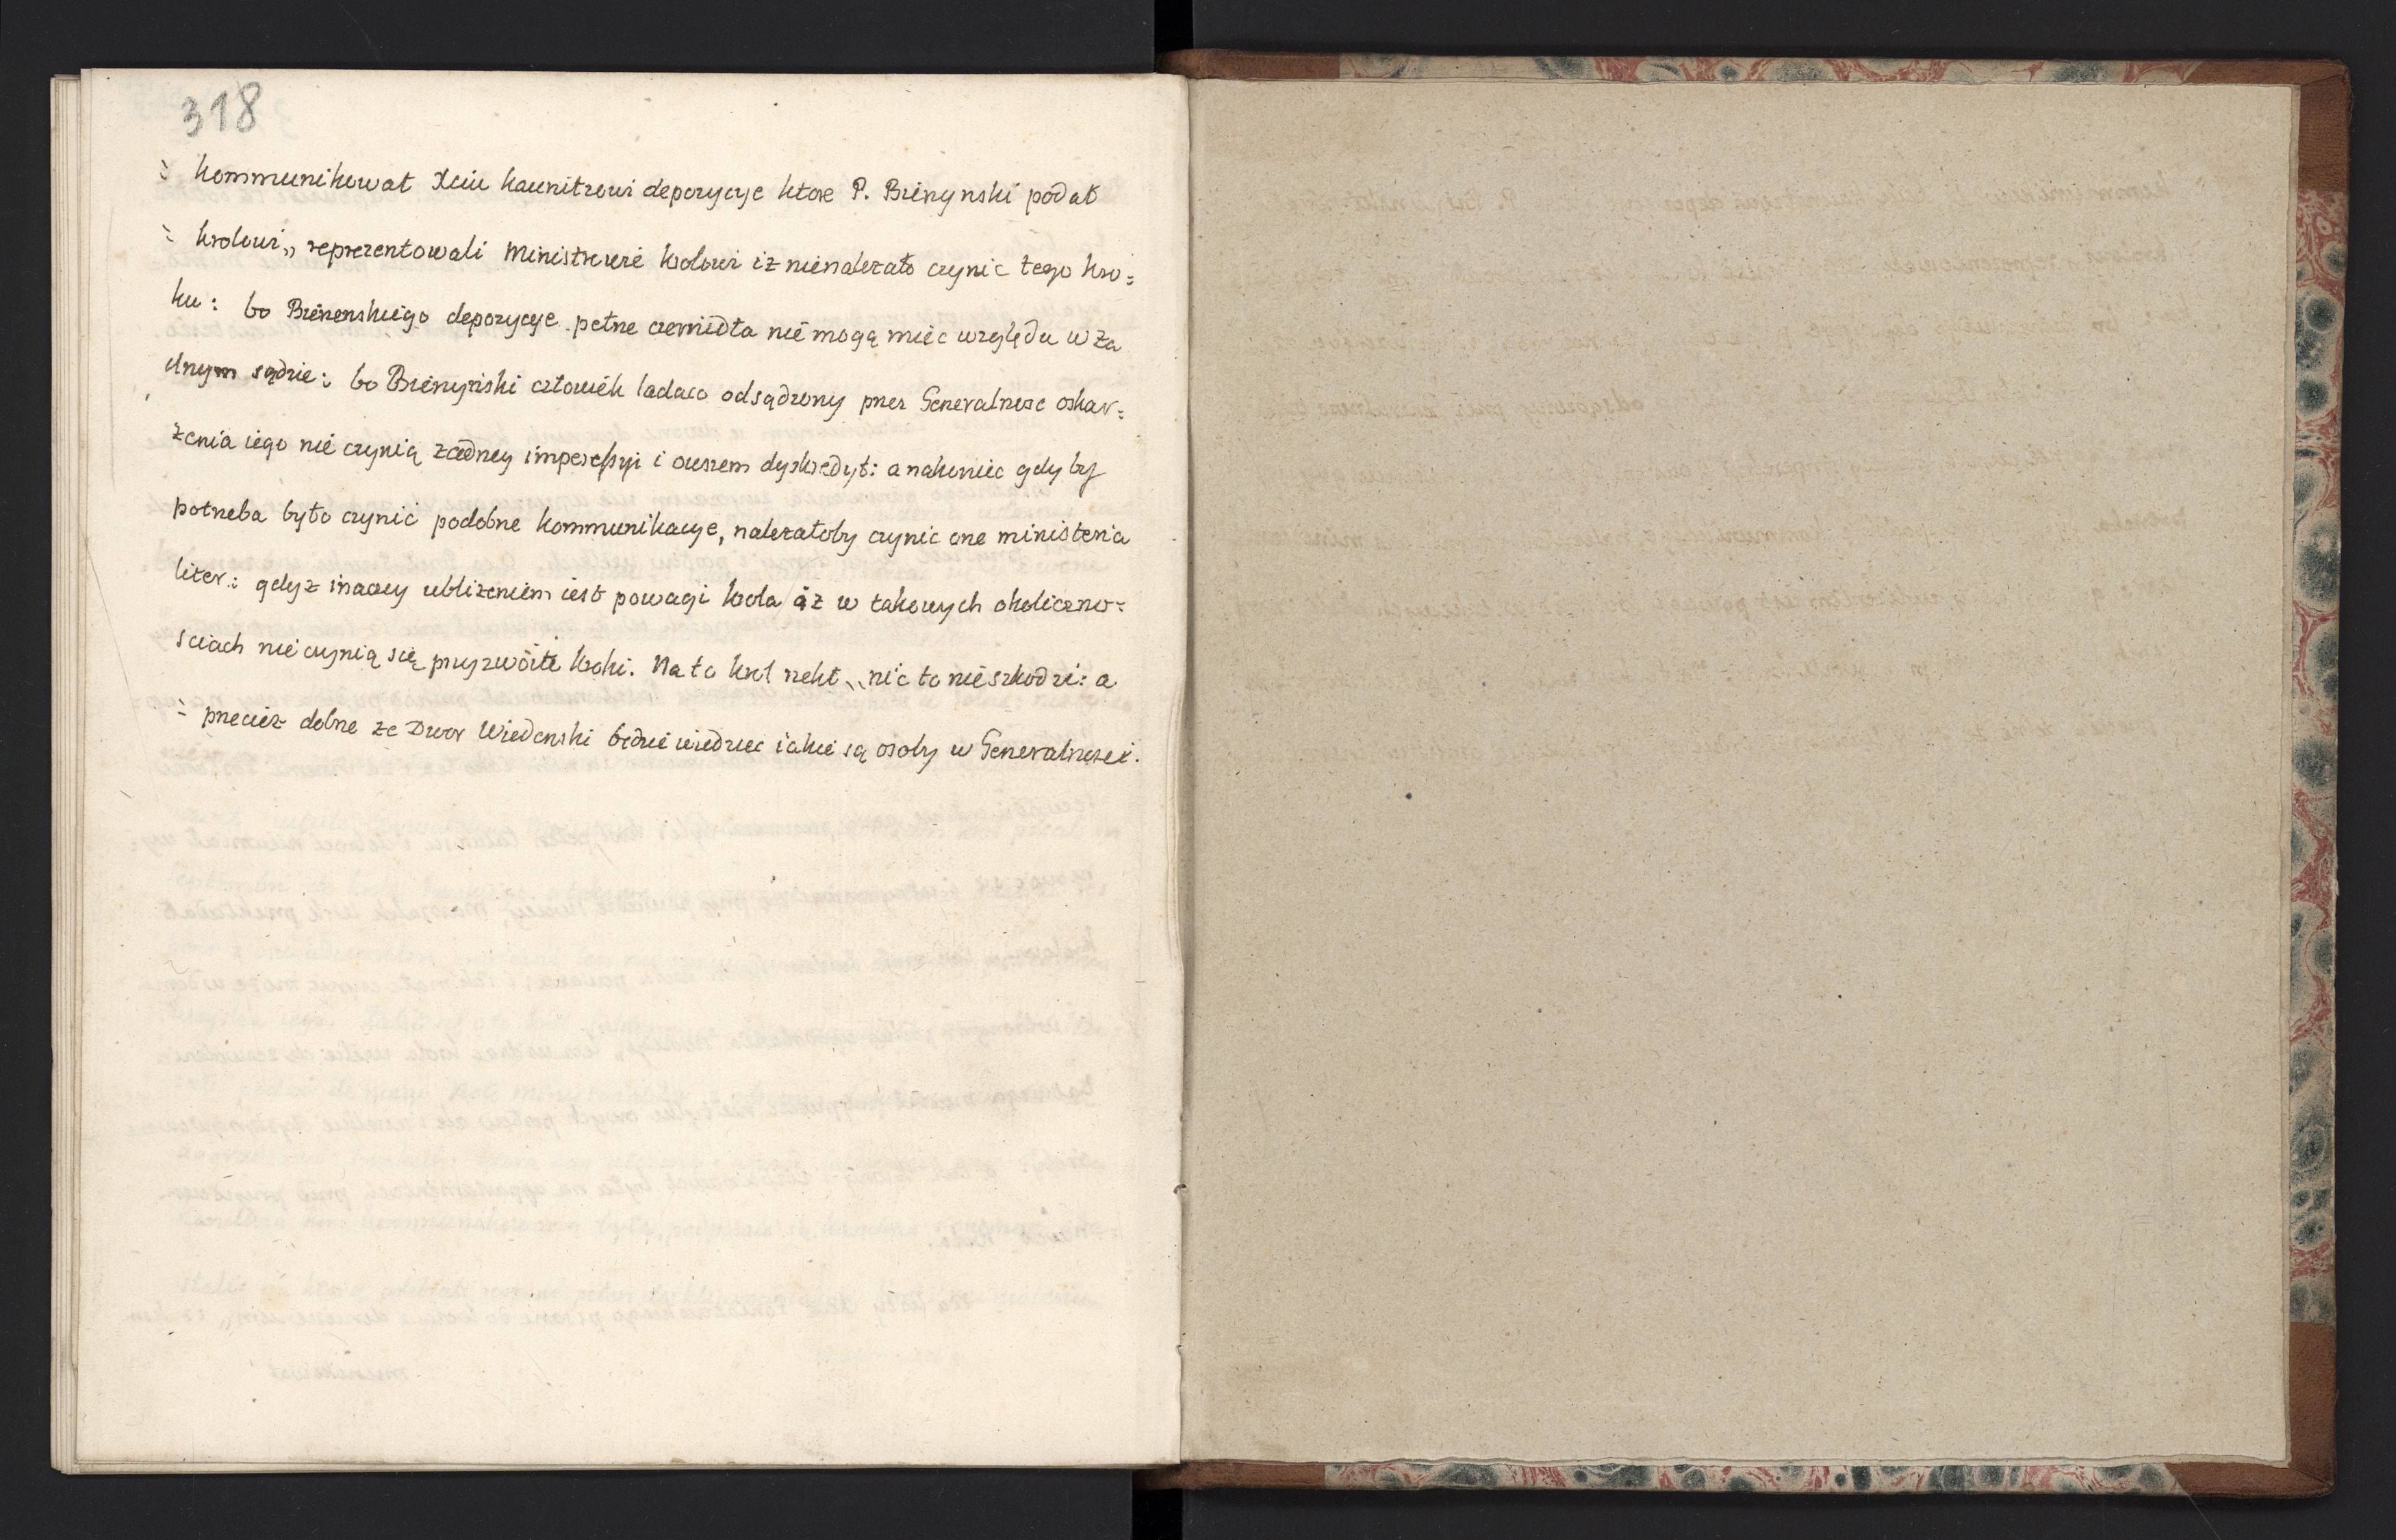 318
" kommunikował Xciu kaunitzowi depozycye ktore P. Brzenynski podał
" krolowi„ reprezentowali Ministrowie krolowi iz nienalezało czynic tego kro=
ku: bo Brzenenskiego depozycye pełne czernidła nie mogą miec względu w za
dnym sądzie: bo Brzenynski człowiek ladaco odsądzony przez Generalnosc oskar=
zenia iego nie czynią zadney impressyi i owszem dyskredyt: a nakoniec gdy by
potrzeba było czynić podobne kommunikacye, nalezałoby czynic one ministeria
liter: gdysz inaczey ubliżeniem iest powagi krola iz w takowych okoliczno=
sciach nie czynią się przyzwoite kroki. Na to krol rzekł „nic to nie szkodzi: a
" przeciez dobrze ze Dwor Wiedenski będzie wiedziec iakie są osoby w Generalnosci.